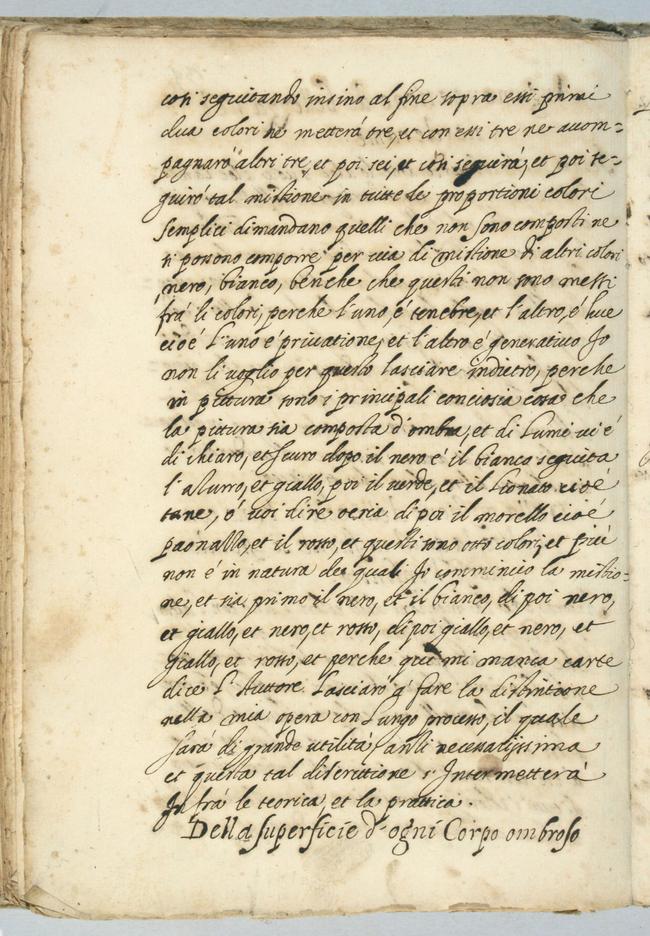 così seguitando insino al fine sopra essi primi
dua colori ne metterà tre, et con essi tre ne acom=
pagnarò altri tre, et poi sei, et così seguirà, et poi se=
guirò tal mistione in tutte le proportioni colori
semplici dimandano quelli che non sono composti ne
si possono comporre per uia di mistione di altri colori
nero, bianco, benche che questi non sono messi
frà li colori, perche l'uno, é tenebre, et l'altro, é luce
cioé l'uno é priuatione, et l'altro é generatiuo Io
non li uoglio per questo lasciare indietro, perche
in pittura sono i principali conciosia cosa che
la pittura sia composta d'ombra, et di lumi ci é
di chiaro, et scuro dopo il nero é il bianco seguita
l'azurro, et giallo, poi il uerde, et il lionato cioé
tane, ó uoi dire ocria di poi il morello cioé
paonallo, et il rosso, et questi sono otto colori, et più
non é in natura de quali Io commincio la mistio=
ne, et sia primo il nero, et il bianco, di poi nero,
et giallo, et nero, et rosso, di poi giallo, et nero, et
giallo, et rosso, et perche qui mi manca carte
dice l'Auttore. Lasciarò a' fare la distintione
nella mia opera con lungo processo, il quale
sarà di grande utilità, anzi necessarijssima
et questa tal discrittione s'Intermetterà
In frà le teorica, et la prattica.
Della superficie d'ogni Corpo ombroso